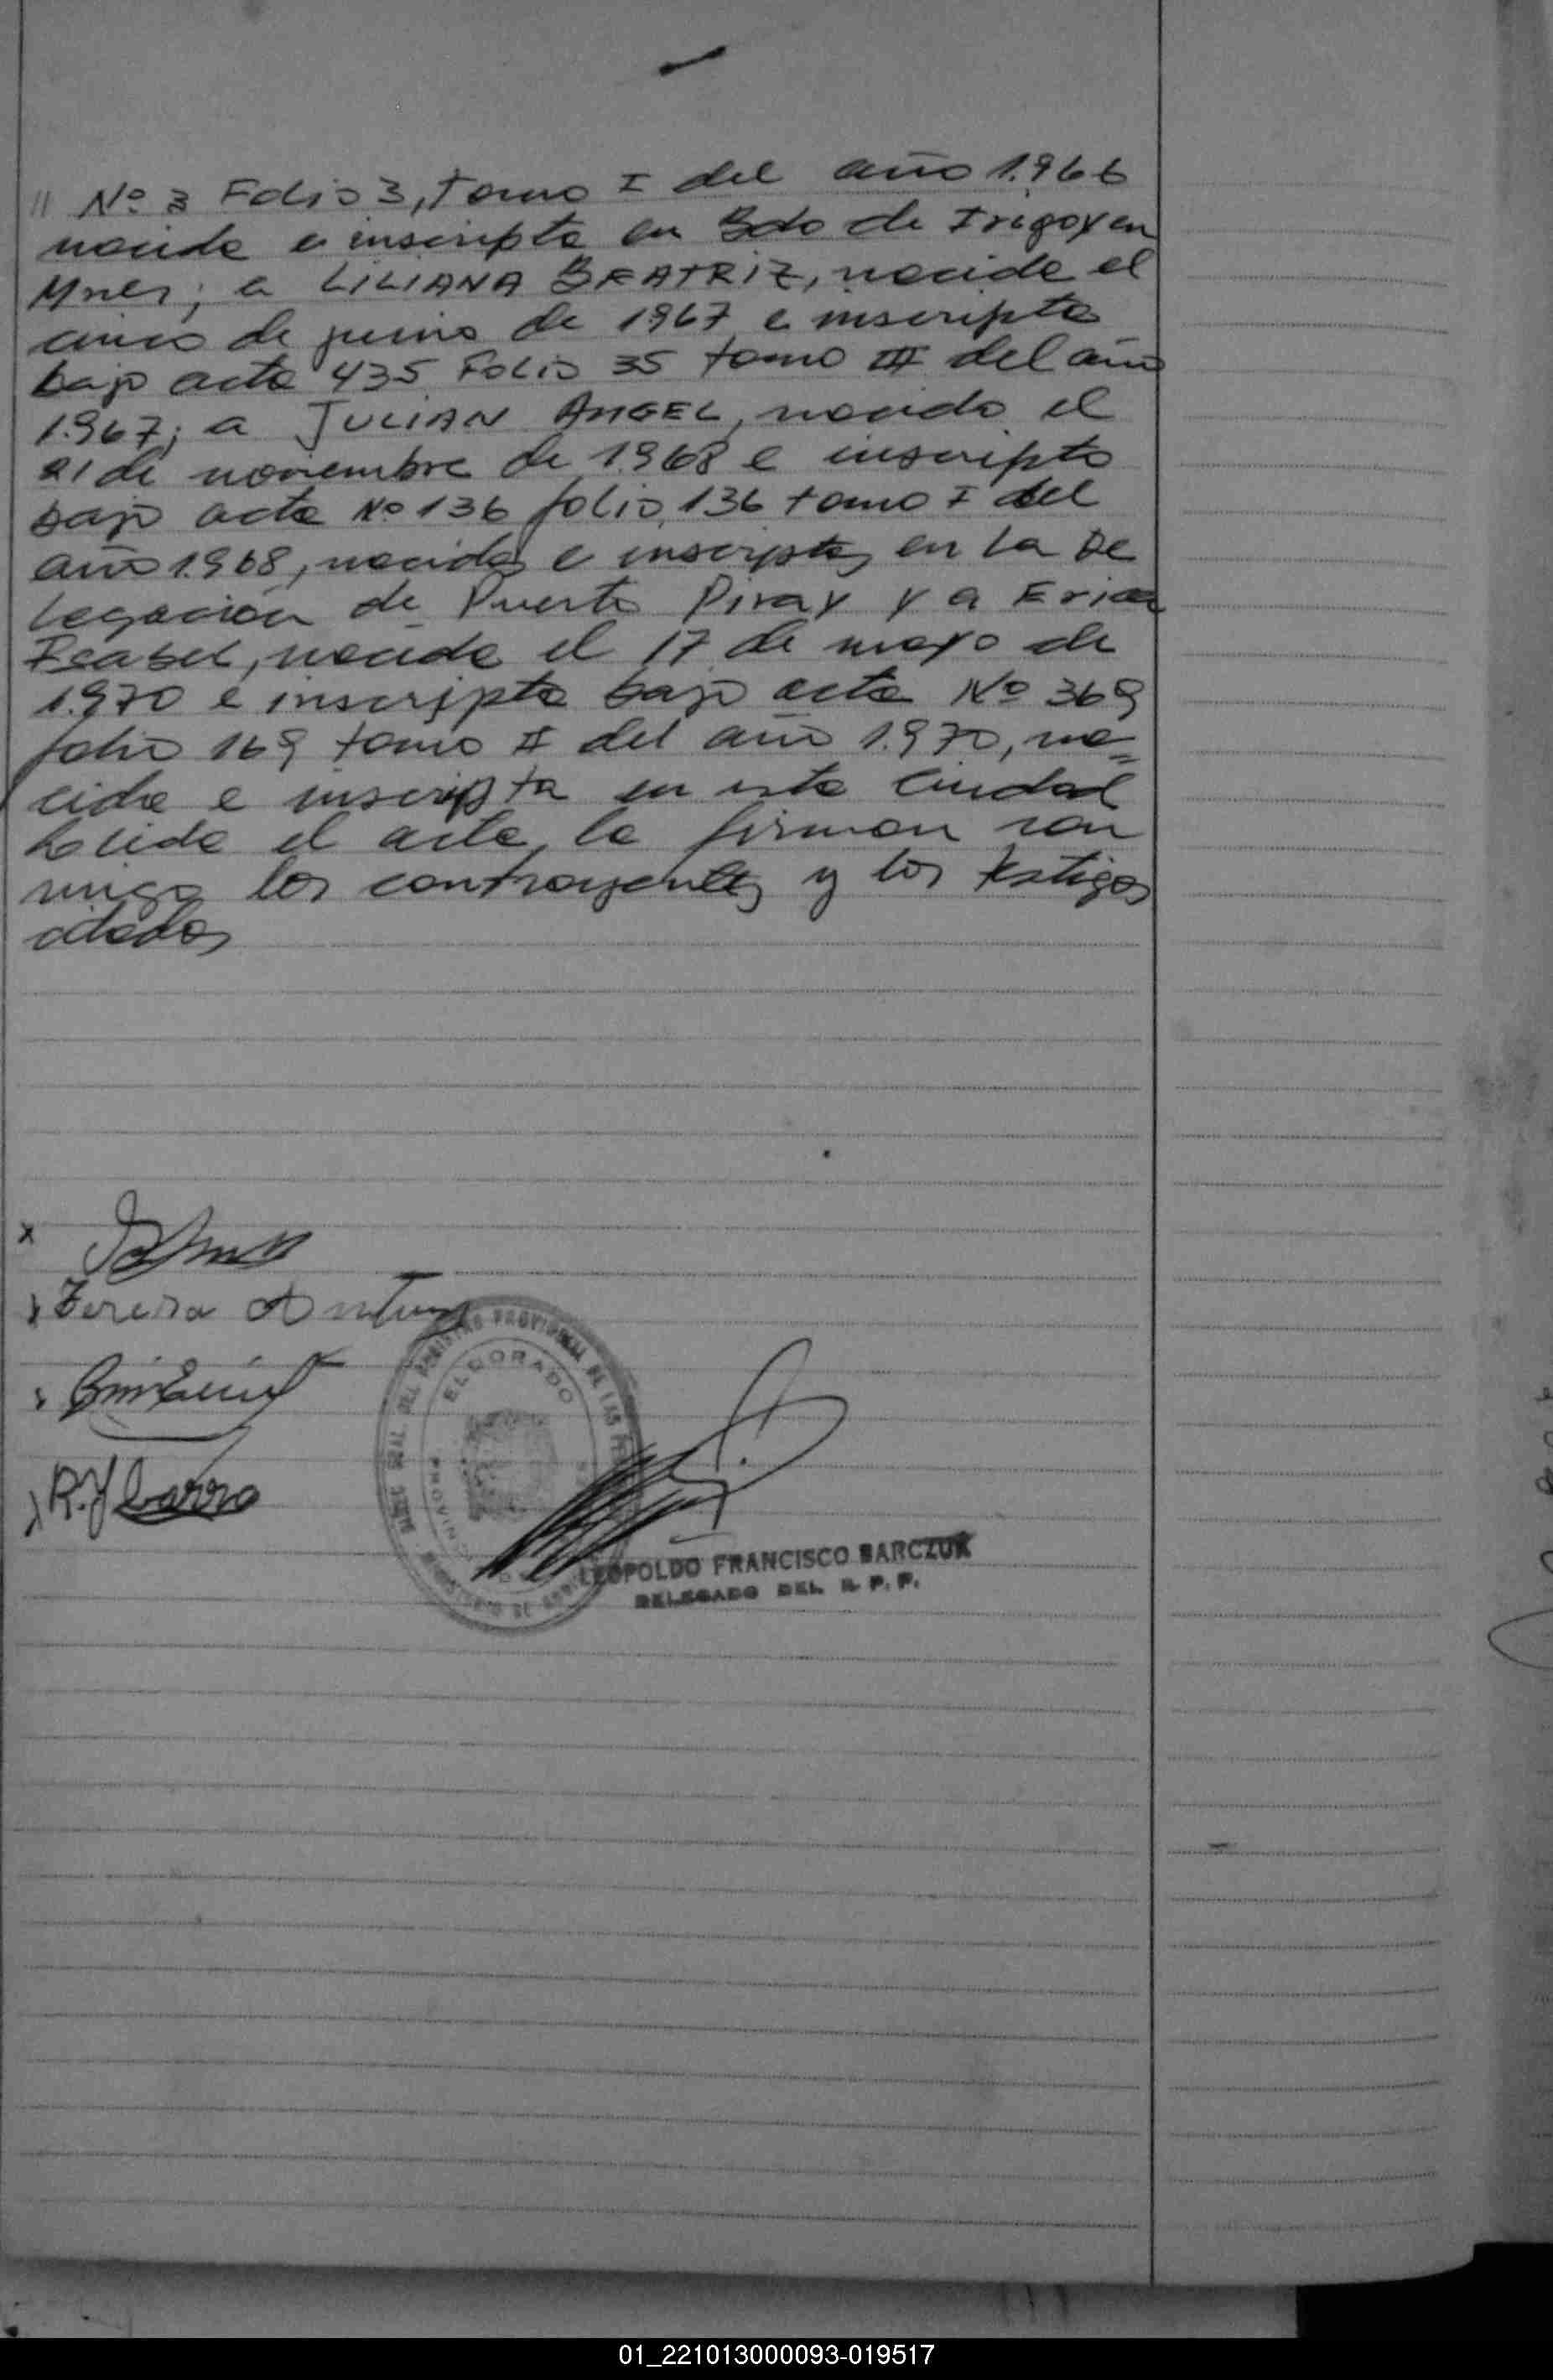 // Nº 3 Folio 3, Tomo I del año 1.966
nacida e inscripta en Bdo de Irigoyen
Mnes; a LILIANA BEATRIZ, nacida el
cinco de junio de 1967 e inscripta
bajo acta 435 Folio 35 tomo III del año
1.967; a JULIAN ANGEL, nacido el
21 de noviembre de 1.968 e inscripto
bajo acta Nº 136 folio 136 tomo I del
año 1.968, nacidos e inscriptos en la De
legación de Puerto Piray y a Erica
Isabel, nacida el 17 de mayo de
1.970 e inscripta bajo acta Nº 369
folio 169 tomo II del año 1.970, na=
cida e inscripta en esta Ciudad
Leida el acta, la firman con
migo los contrayentes y los testigos
citados
x
Teresa Antun
R. Ybarra
ELDORADO
LEOPOLDO FRANCISCO BARCZUK
DELEGADO DEL R. P. P.
01_221013000093-019517